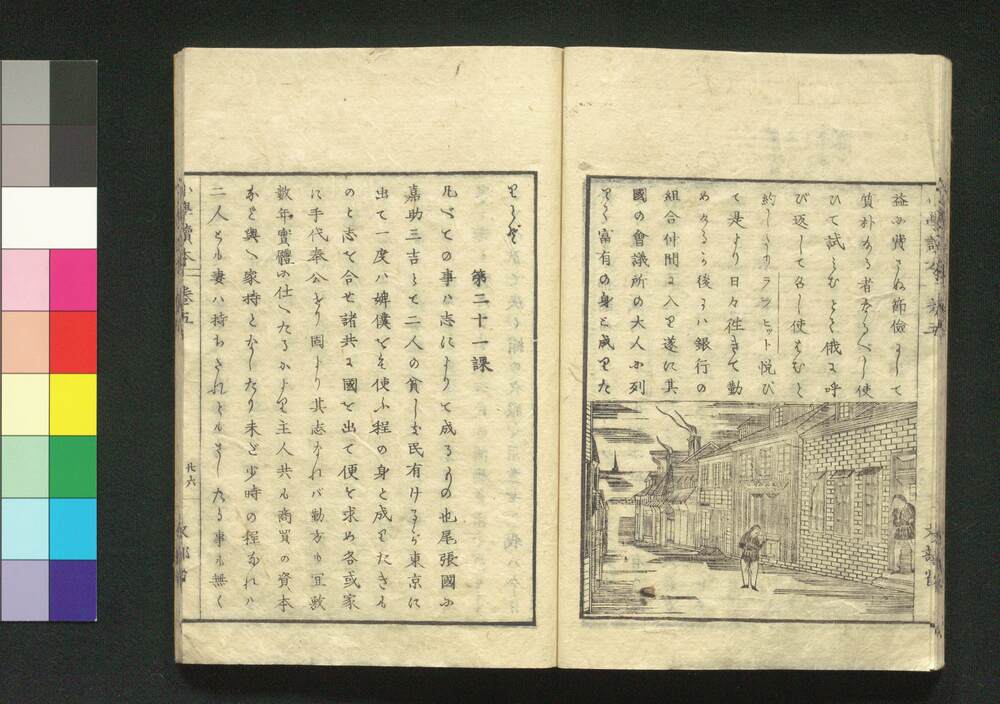 益や費さぬ節倹にして
質朴なる者なるべし使
ひて試みむとて俄に呼
び返して召し使はむと
約しけりラフヒット悦び
て是より日々往きて勤
めけるが後には銀行の
組合仲間に入りて遂に其
國の會議所の大人に列
りて富有の身と成りた
りとぞ
第二十一課
凡ての事は志によりて成るもの也尾張國に
嘉助三吉とて二人の貧しき民有けるが東京に
出て一度は婢僕をも使ふ程の身と成りたきも
のと志を合せ諸共に國を出て便を求め各或家
に手代奉公せり固より其志なれば勤方も宜敷
數年實體に仕へたるにより主人共も商買の資本
などを與へ家持となしたり未だ少時の程なれば
二人とも妻は持たざれども
事も無く
小學讀本 巻五
廿六
文部省